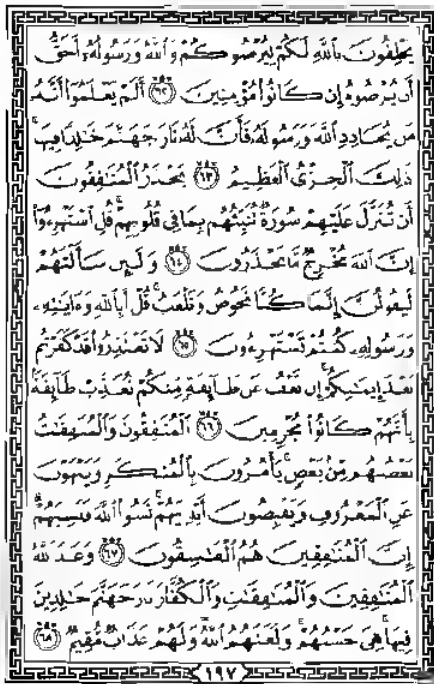 يَحْلِفُونَ بِٱللَّهِ لَكُمْ لِيُرْضُوكُمْ وَٱللَّهُ وَرَسُولُهُۥٓ أَحَقُّ
أَن يُرْضُوهُ إِن كَانُوا۟ مُؤْمِنِينَ ۝٦٢ أَلَمْ يَعْلَمُوٓا۟ أَنَّهُۥ
مَن يُحَادِدِ ٱللَّهَ وَرَسُولَهُۥ فَأَنَّ لَهُۥ نَارَ جَهَنَّمَ خَٰلِدًا فِيهَا ۚ
ذَٰلِكَ ٱلْخِزْىُ ٱلْعَظِيمُ ۝٦٣ يَحْذَرُ ٱلْمُنَٰفِقُونَ
أَن تُنَزَّلَ عَلَيْهِمْ سُورَةٌ تُنَبِّئُهُم بِمَا فِى قُلُوبِهِمْ ۚ قُلِ ٱسْتَهْزِءُوٓا۟
إِنَّ ٱللَّهَ مُخْرِجٌ مَّا تَحْذَرُونَ ۝٦٤ وَلَئِن سَأَلْتَهُمْ
لَيَقُولُنَّ إِنَّمَا كُنَّا نَخُوضُ وَنَلْعَبُ ۚ قُلْ أَبِٱللَّهِ وَءَايَٰتِهِۦ
وَرَسُولِهِۦ كُنتُمْ تَسْتَهْزِءُونَ ۝٦٥ لَا تَعْتَذِرُوا۟ قَدْ كَفَرْتُم
بَعْدَ إِيمَٰنِكُمْ ۚ إِن نَّعْفُ عَن طَآئِفَةٍ مِّنكُمْ نُعَذِّبْ طَآئِفَةًۢ
بِأَنَّهُمْ كَانُوا۟ مُجْرِمِينَ ۝٦٦ ٱلْمُنَٰفِقُونَ وَٱلْمُنَٰفِقَٰتُ
بَعْضُهُم مِّنۢ بَعْضٍ ۚ يَأْمُرُونَ بِٱلْمُنكَرِ وَيَنْهَوْنَ
عَنِ ٱلْمَعْرُوفِ وَيَقْبِضُونَ أَيْدِيَهُمْ ۚ نَسُوا۟ ٱللَّهَ فَنَسِيَهُمْ ۗ
إِنَّ ٱلْمُنَٰفِقِينَ هُمُ ٱلْفَٰسِقُونَ ۝٦٧ وَعَدَ ٱللَّهُ
ٱلْمُنَٰفِقِينَ وَٱلْمُنَٰفِقَٰتِ وَٱلْكُفَّارَ نَارَ جَهَنَّمَ خَٰلِدِينَ
فِيهَا ۚ هِىَ حَسْبُهُمْ ۚ وَلَعَنَهُمُ ٱللَّهُ ۖ وَلَهُمْ عَذَابٌ مُّقِيمٌ ۝٦٨
١٩٧